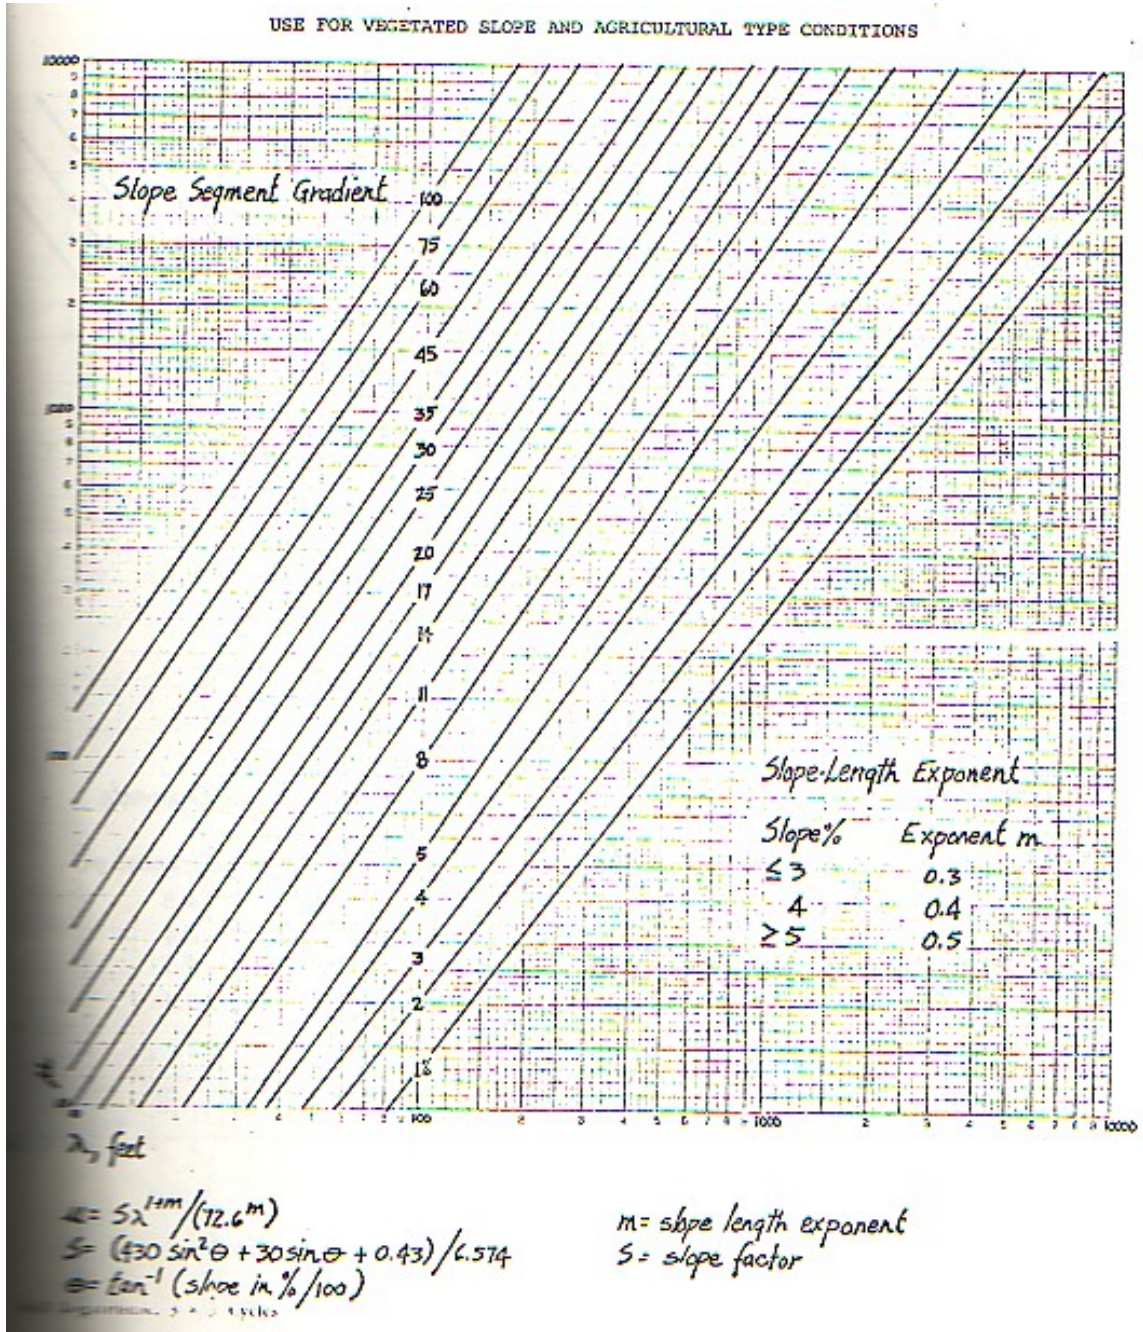 USE FOR VEGETATED SLOPE AND AGRICULTURAL TYPE CONDITIONS
10000
9
8
7
6
5
Slope Segment Gradient
100
3
75
60
2
45
1000
35
30
25
20
17
14
11
8
5
4
3
2
1%
Slope-Length Exponent
Slope% Exponent m
≤3 0.3
4 0.4
≥5 0.5
100 1000 10000
λ, feet
= Sλ^1+m/(72.6^m)
S= (430 sin²θ + 30 sin θ + 0.43)/6.574
θ= tan⁻¹ (slope in %/100)
m= slope length exponent
S= slope factor
cycles